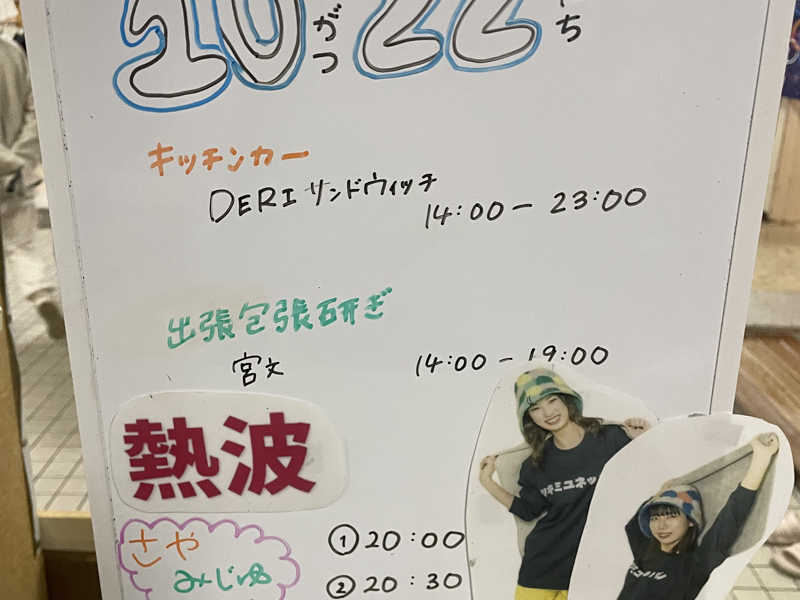 10がつ22にち
キッチンカー
DERIサンドウィッチ
14:00 - 23:00
出張包張研ぎ
宮文
14:00 - 19:00
熱波
さや
みじゅ
① 20:00
② 20:30